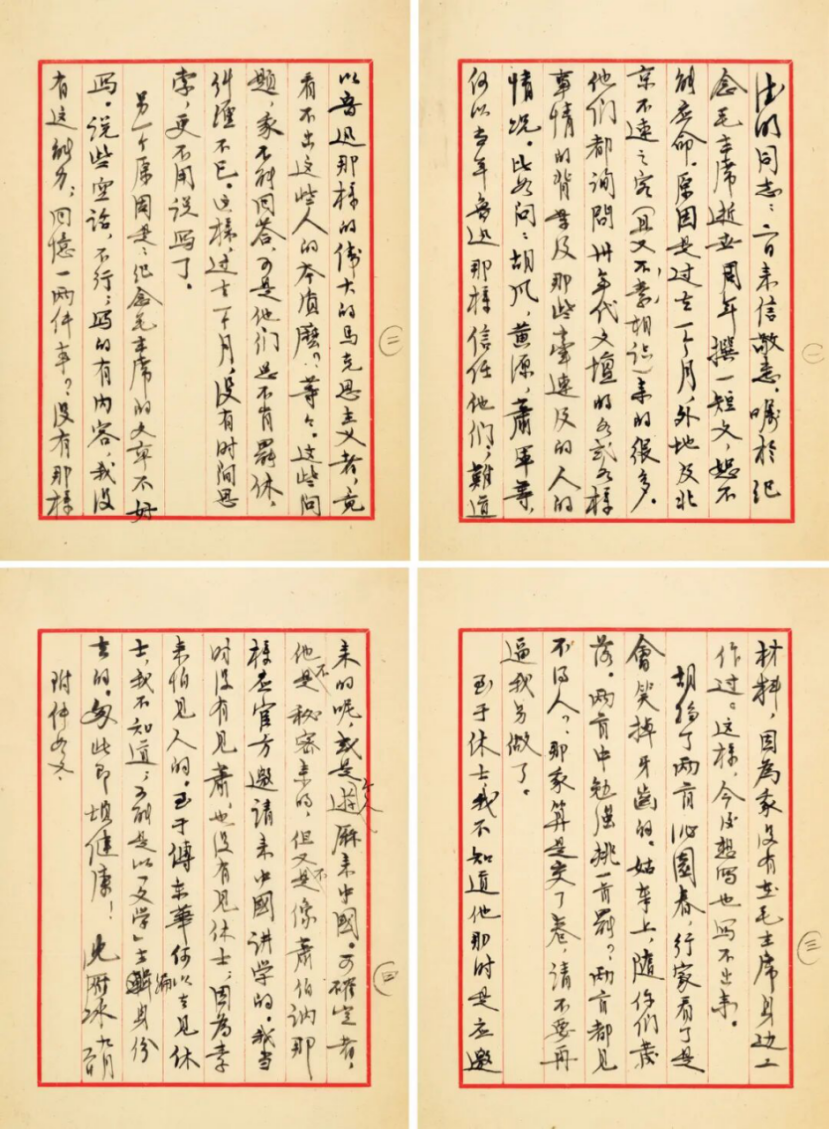 德明同志：二日来信敬悉。嘱於纪
念毛主席逝世周年撰一短文，恕不
能应命。原因是过去一个月，外地及北
京不速之客（且又不素相识）来的很多。
他们都询问卅年代文坛的各式各样
事情的背景及那些牵连及的人的
情况。比如问：胡风，黄源，萧军等，
何以当年鲁迅那样信任他们，难道
（一）
以鲁迅那样的伟大的马克思主义者，竟
看不出这些人的本质麽？等等。这些问
题，我不能回答。可是他们还不肯罢休，
纠缠不已。这样，过去一个月，没有时间思
索，更不用说写了。
另一个原因是：纪念毛主席的文章不好
写。说些空话，不行；写的有内容，我没
有这能力；回憶一两件事？没有那样
（二）
材料，因為我没有在毛主席身边工
作过。这样，今後想写也写不出来。
胡诌了两首沁園春，行家看了是
會笑掉牙齒的。姑奉上，随你们發
落。两首中勉强挑一首罢？两首都见
不得人？那我算是交了卷，请不要再
逼我另做了。
至于休士，我不知道他那时是应邀
（三）
来的呢，或是个人遊历来中國。可確定者，
他不是秘密来的，但又不是像萧伯讷那
样应官方邀请来中國讲学的。我当
时没有见萧，也没有见休士，因為素
来怕见人的。至于傅东華何以去见休
士，我不知道；可能是以「文学」主编身份
去的。匆此即颂健康！ 沈雁冰 九月
附件如文
（四）